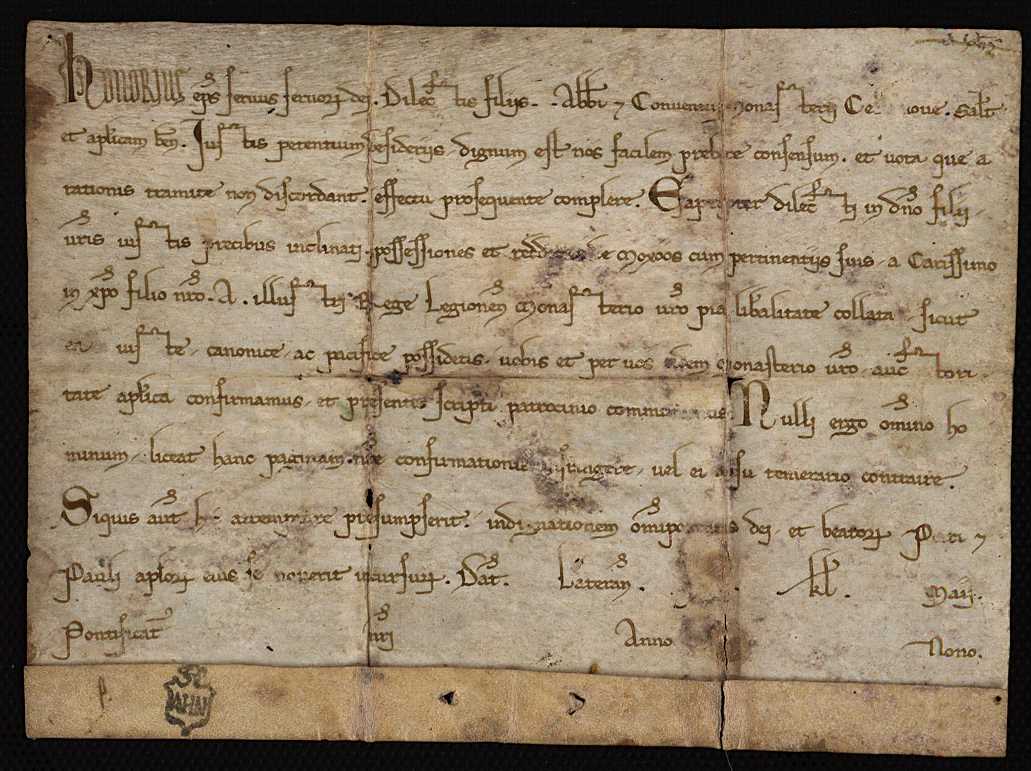 honorius eps seruus seruorum dei. Dilectis filiis .. Abbi ⁊ Conuentui Monasterii salt
et aplicam ben. Iustis petentium desideriis dignum est nos facilem prebere consensum. et uota que a
rationis tramite non discordant. effectu prosequente complere. Eapropter dilecti in dno filii
uris iustis precibus inclinati. possessiones et de Moxoos cum pertinentiis suis a Carissimo
in xpo filio nro .A. illustri Rege Legionen Monasterio uro pia liberalitate collata sicut
ea iuste canonice ac pacifice possidetis. uobis et per uos eidem Monasterio uro auctori
tate aplica confirmamus et presentis scripti patrocinio communimus. Nulli ergo omnino ho
minum liceat hanc paginam nre confirmationis infringere. uel ei ausu temerario contraire.
Siquis aut hoc attemptare presumpserit. indignationem omnipotentis dei et beatorum Petri ⁊
Pauli aplorum eius se nouerit incursurum. Dat. Lateran. kl. Maii.
Pontificat nri Anno Nono.
AHN